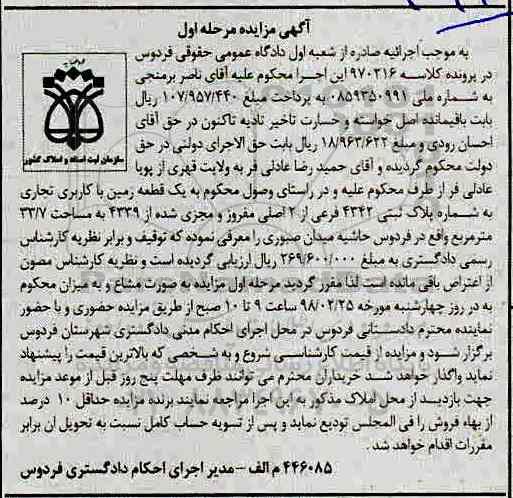 آگهی مزایده مرحله اول
به موجب اجرائیه صادره از شعبه اول دادگاه عمومی حقوقی فردوس
در پرونده کلاسه ۹۷۰۲۱۶ این اجرا محکوم علیه آقای ناصر برمنجی
به شماره ملی ۰۸۵۹۳۵۰۹۹۱ به پرداخت مبلغ ۱۰۷/۹۵۷/۴۴۰ ریال
بابت باقیمانده اصل خواسته و خسارت تاخیر تادیه تاکنون در حق آقای
احسان رودی و مبلغ ۱۸/۹۶۳/۶۲۲ ریال بابت حق الاجرای دولتی در حق
دولت محکوم گردیده و آقای حمید رضا عادلی فر به ولایت قهری از پویا
عادلی فر از طرف محکوم علیه و در راستای وصول محکوم به یک قطعه زمین با کاربری تجاری
به شماره پلاک ثبتی ۴۳۴۲ فرعی از ۲ اصلی مفروز و مجزی شده از ۴۳۳۹ به مساحت ۳۳/۷
مترمربع واقع در فردوس حاشیه میدان صبوری را معرفی نموده که توقیف و برابر نظریه کارشناس
رسمی دادگستری به مبلغ ۲۶۹/۶۰۰/۰۰۰ ریال ارزیابی گردیده است و نظریه کارشناس مصون
از اعتراض باقی مانده است لذا مقرر گردید مرحله اول مزایده به صورت مشاع و به میزان محکوم
به در روز چهارشنبه مورخه ۹۸/۰۲/۲۵ ساعت ۹ تا ۱۰ صبح از طریق مزایده حضوری و با حضور
نماینده محترم دادستانی فردوس در محل اجرای احکام مدنی دادگستری شهرستان فردوس
برگزار شود و مزایده از قیمت کارشناسی شروع و به شخصی که بالاترین قیمت را پیشنهاد
نماید واگذار خواهد شد خریداران محترم می توانند ظرف مهلت پنج روز قبل از موعد مزایده
جهت بازدید از محل املاک مذکور به این اجرا مراجعه نمایند برنده مزایده حداقل ۱۰ درصد
از بهاء فروش را فی المجلس تودیع نماید و پس از تسویه حساب کامل نسبت به تحویل ان برابر
مقررات اقدام خواهد شد.
۴۴۶۰۸۵ م الف - مدیر اجرای احکام دادگستری فردوس
سازمان ثبت اسناد و املاک کشور